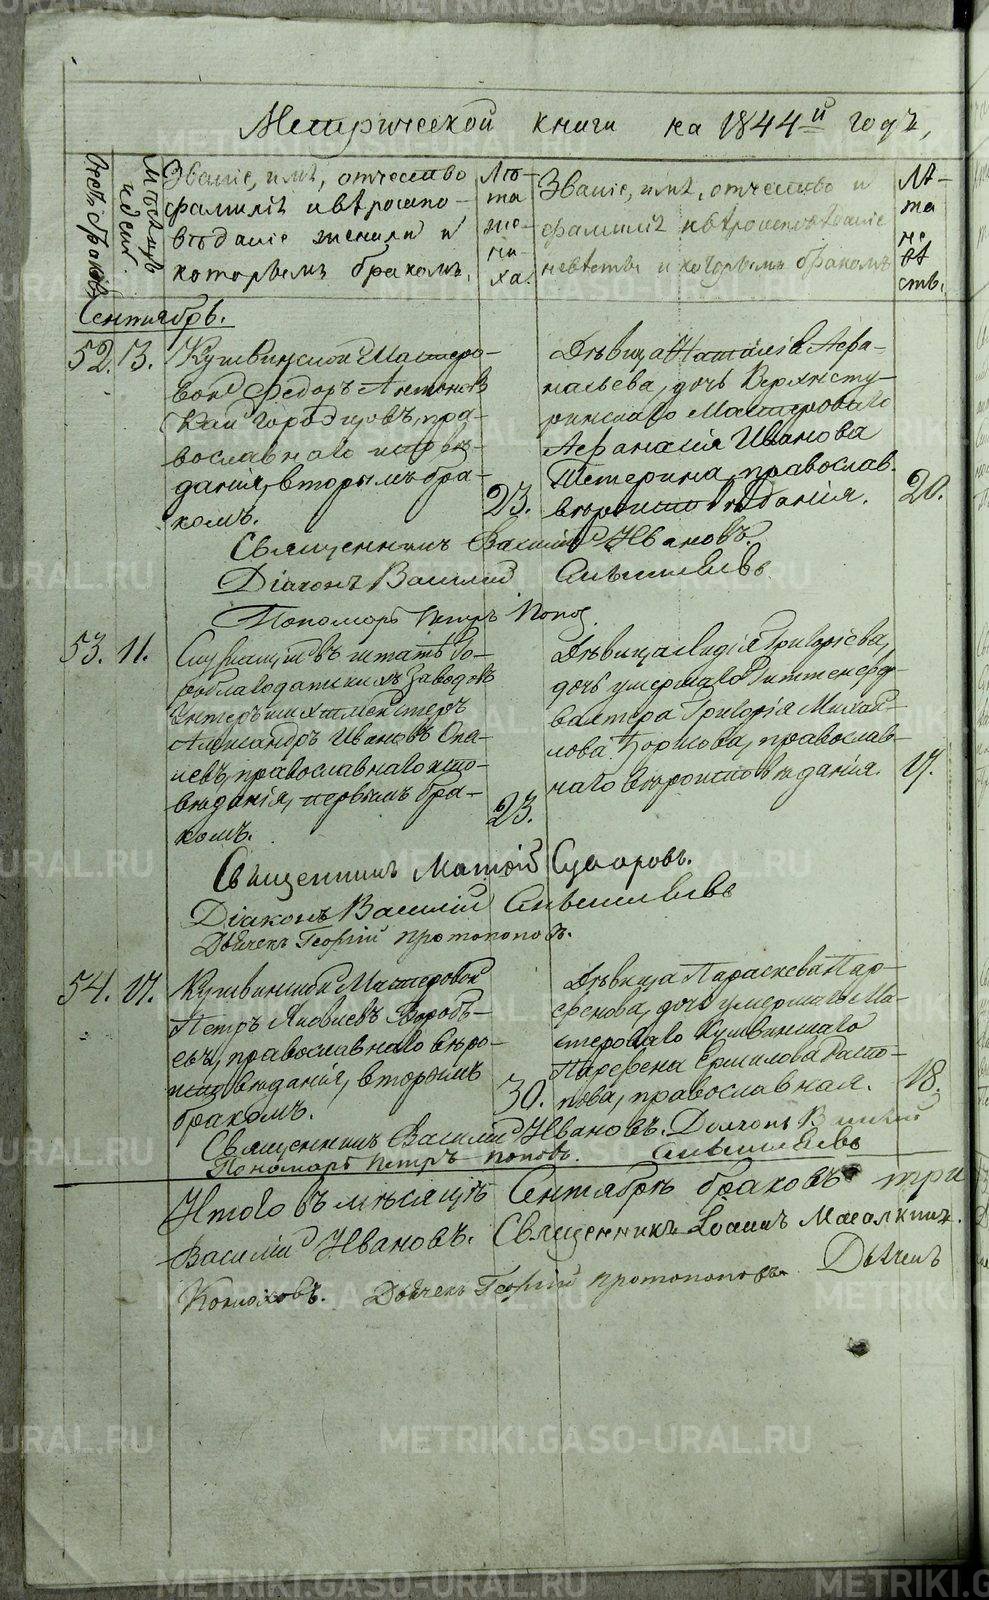 Метрической книги на 1844й годъ,
Счетъ браковъ
Мѣсяцъ и день.
Званіе, имѣ, отчество
фамиліѣ и вѣроиспо-
вѣданіе жениха и
которымъ бракомъ.
Лѣ-
та
же-
ни-
ха.
Званіе, имѣ, отчество и
фамиліѣ и вѣроисповѣданіе
невѣсты и которымъ бракомъ
Лѣ-
та
не
вѣ
сты.
Сентябрь.
52. 13. Кушвинской Мастеро-
вой Федоръ Антоновъ
Кайгородцовъ, пра-
вославнаго исповѣ-
данія, вторымъ бра-
комъ.
23.
Дѣвица Наталія Афа-
насьева, дочь Верхнету-
ринскаго Мастероваго
Афанасія Иванова
Тетерина, православ.
вѣроисповѣданія.
20.
Священникъ Василій Ивановъ.
Діаконъ Василий
Пономарь Петръ Попов
53. 11. Служащій въ штатѣ Го-
роблагодатскихъ Заводовъ
Унтеръ шихтмейстеръ
Александръ Ивановъ
православнаго испо-
вѣданія, первымъ бра-
комъ.
23.
Дѣвица Лидія Григорьева,
дочь умершаго Гиттенферв-
валтера Григорія Михай-
лова православ-
наго вѣроисповѣданія.
17.
Священникъ Матѳій Сукоровъ.
Діаконъ Василій
Дьячекъ Георгій Протопоповъ.
54. 17. Кушвинскій Мастеровой
Петръ Яковлевъ Воробь-
евъ, православнаго вѣро-
исповѣданія, вторымъ
бракомъ.
30.
Дѣвица Параскева Пар-
фенова, дочь умершаго Ма-
стероваго Кушвинскаго
Парфена Ермилова Расто-
пова, православная.
18.
Священникъ Василій Ивановъ. Діаконъ Василій
Пономарь Петръ Поповъ.
Итого въ мѣсяцѣ Сентябрѣ браковъ три
Василій Ивановъ. Священникъ Іоаннъ Масалкинъ.
Дьячекъ
Конюховъ. Дьячекъ Георгій Протопоповъ
METRIKI.GASO-URAL.RU